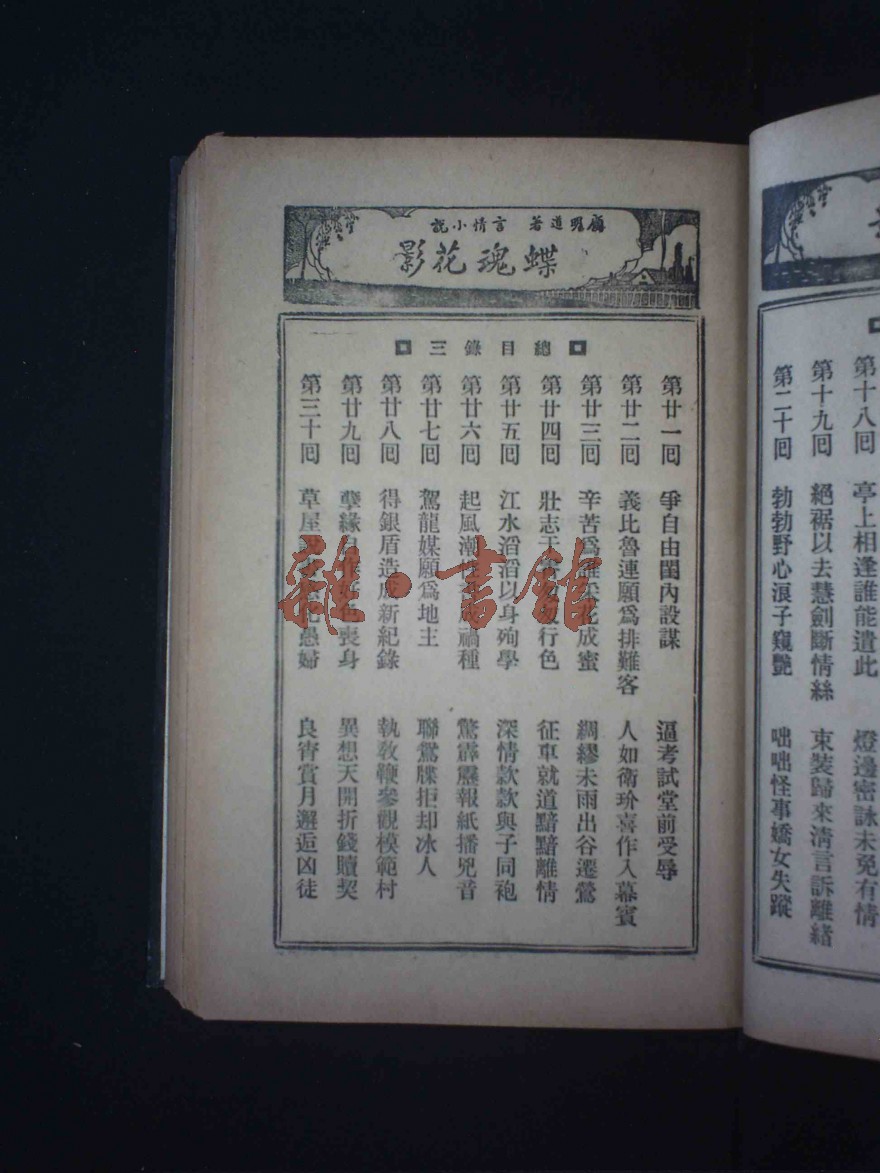 第十八回 亭上相逢誰能遣此 燈邊密詠未免有情
第十九回 絕裾以去慧劍斷情絲 束裝歸來清言訴離緒
第二十回 勃勃野心浪子窺艷 咄咄怪事嬌女失蹤
顧明道著 言情小說
蝶魂花影
總目錄三
第廿一回 爭自由閨內設謀 逼考試堂前受辱
第廿二回 義比魯連願爲排難客 人如衛玠喜作入幕賓
第廿三回 辛苦爲誰采花成蜜 綢繆未雨出谷遷鶯
第廿四回 壯志天 行色 征車就道黯黯離情
第廿五回 江水滔滔以身殉學 深情款款與子同袍
第廿六回 起風潮 成禍種 驚霹靂報紙播兇音
第廿七回 駕龍媒願爲地主 聯鴛牒拒却冰人
第廿八回 得銀盾造成新紀錄 執敎鞭參觀模範村
第廿九回 孽緣自 好色喪身 異想天開折錢贖契
第三十回 草屋 愚婦 良宵賞月邂逅凶徒
雜·書館